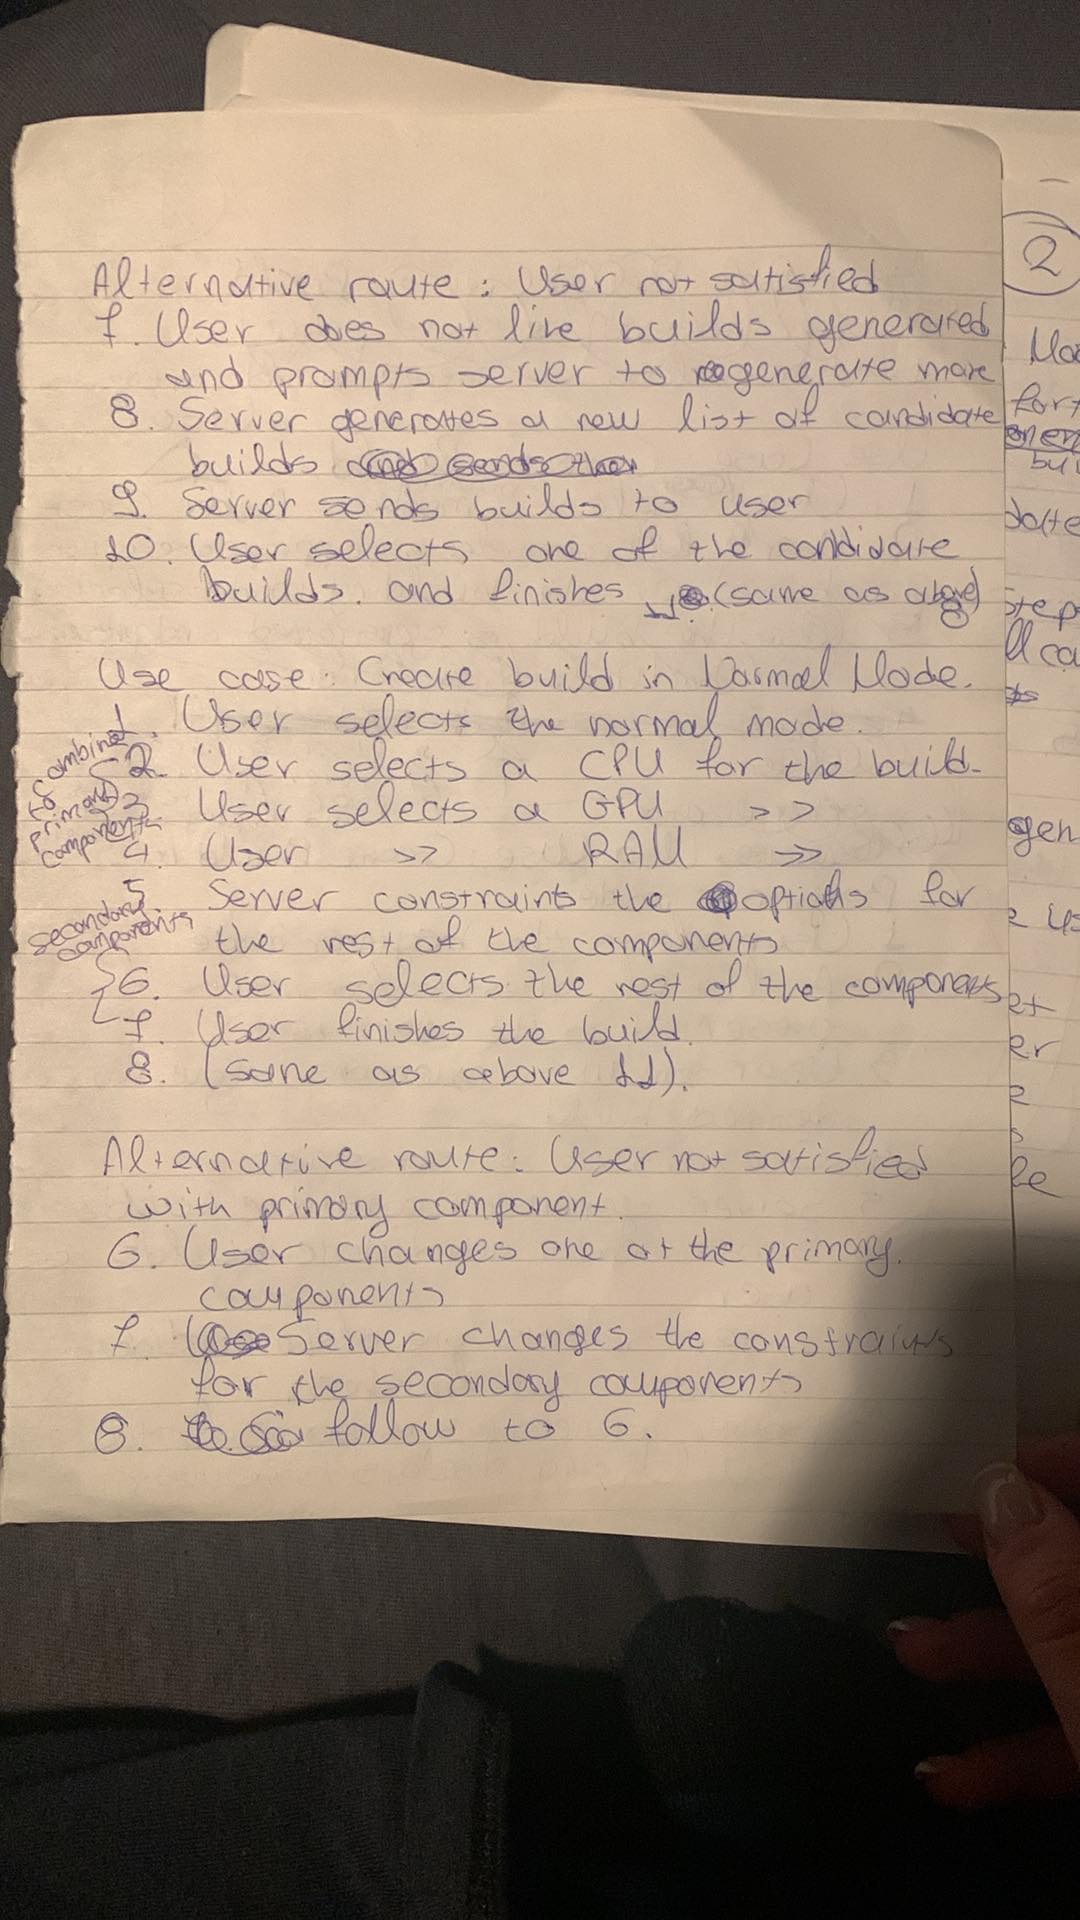 Alternative route : User not satisfied
7. User does not like builds generated
and prompts server to regenerate more
8. Server generates a new list of candidate
builds
9. Server sends builds to user
10. User selects one of the candidate
builds. and finishes (same as above)
8
Use case : Create build in Normal Mode.
1. User selects the normal mode.
2. User selects a CPU for the build.
3 User selects a GPU >>
4. User >> RAM >>
combined
to
primary
components
5. Server constraints the options for
the rest of the components
secondary
components
6. User selects the rest of the components
7. User finishes the build.
8. (same as above 11).
Alternative route : User not satisfied
with primary component.
6. User changes one of the primary
components
7. Server changes the constraints
for the secondary components
8. follow to 6.
2